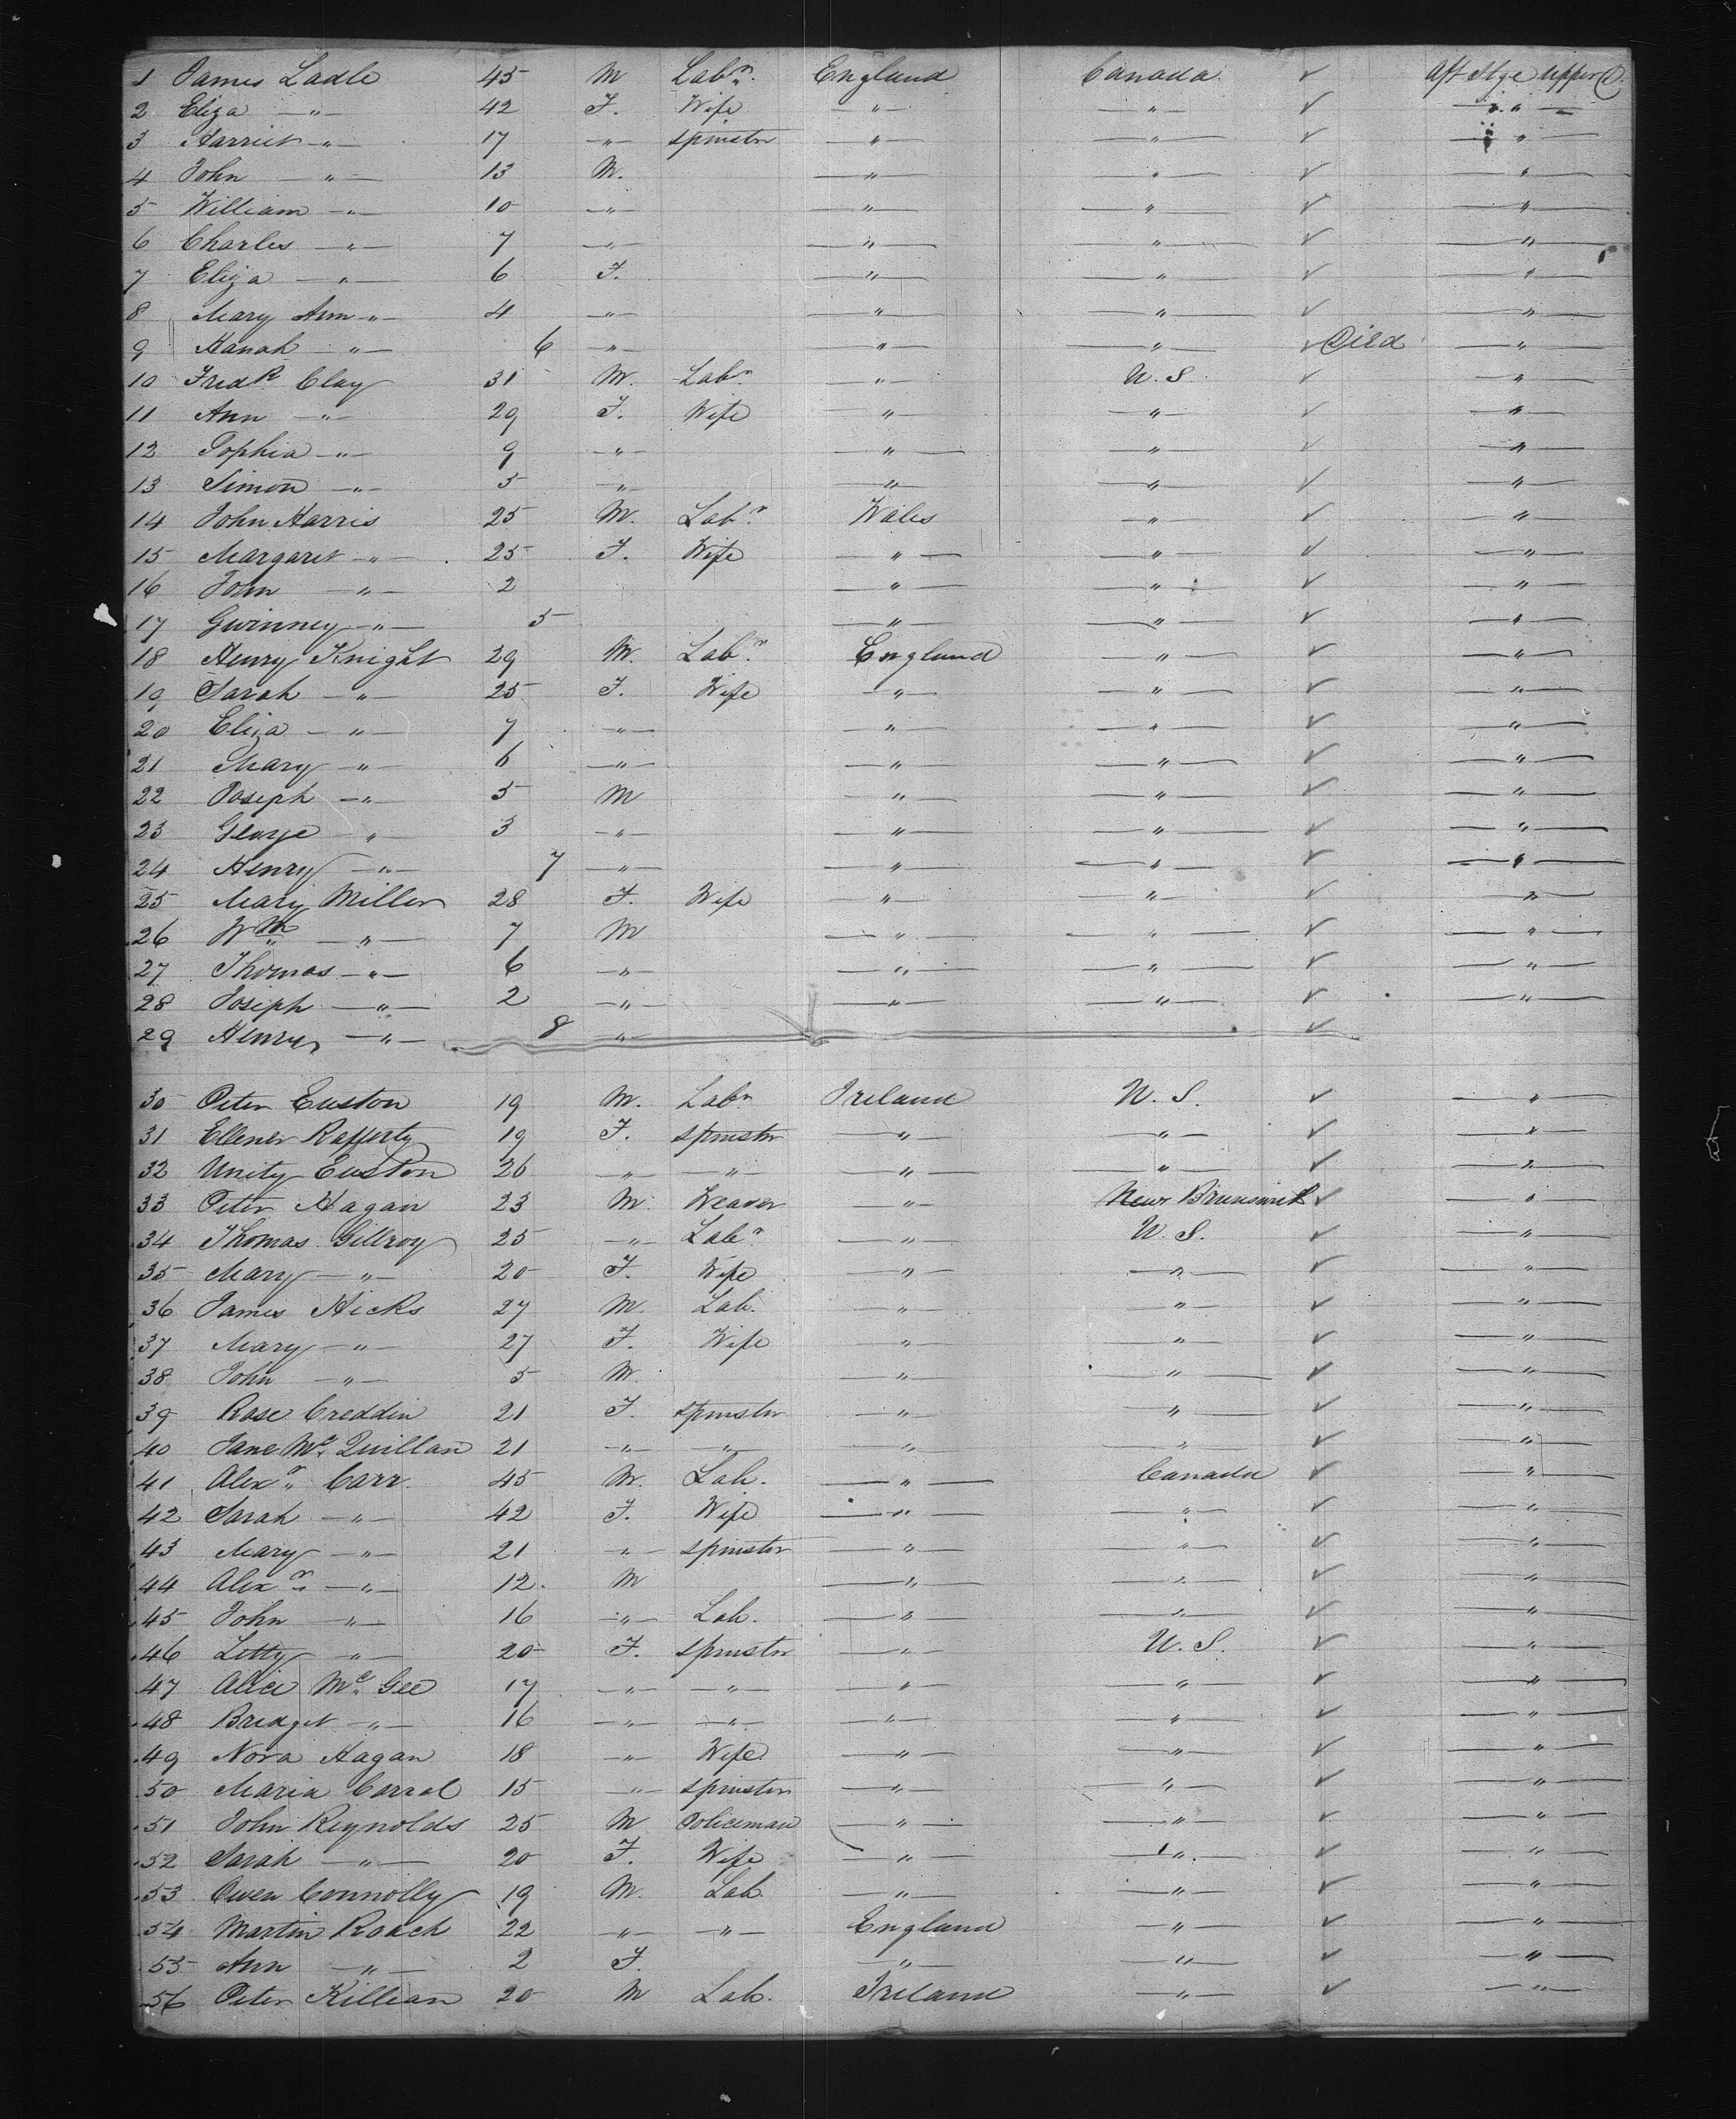 1 James Ladle 45 M Labr. England Canada ✓ Aft Stge Upper
2 Eliza —"— 42 F. Wife —"— —"— ✓ —"—
3 Harriet —"— 17 —"— Spinster —"— —"— ✓ —"—
4 John —"— 13 M. —"— —"— ✓ —"—
5 William —"— 10 —"— —"— —"— ✓ —"—
6 Charles —"— 7 —"— —"— —"— ✓ —"—
7 Eliza —"— 6 F. —"— —"— ✓ —"—
8 Mary Ann —"— 4 —"— —"— —"— ✓ —"—
9 Hanah —"— 6 —"— —"— —"— ✓ Died —"—
10 Fredk Clay 31 M. Labr. —"— U. S. ✓ —"—
11 Ann —"— 29 F. Wife —"— —"— ✓ —"—
12 Sophia —"— 9 —"— —"— —"— ✓ —"—
13 Simon —"— 5 —"— —"— —"— ✓ —"—
14 John Harris 25 M. Labr. Wales —"— ✓ —"—
15 Margaret —"— 25 F. Wife —"— —"— ✓ —"—
16 John —"— 2 —"— —"— ✓ —"—
17 Gwinney —"— 5 —"— —"— ✓ —"—
18 Henry Knight 29 M. Labr. England —"— ✓ —"—
19 Sarah —"— 25 F. Wife —"— —"— ✓ —"—
20 Eliza —"— 7 —"— —"— —"— ✓ —"—
21 Mary —"— 6 —"— —"— —"— ✓ —"—
22 Joseph —"— 5 M —"— —"— ✓ —"—
23 George —"— 3 —"— —"— —"— ✓ —"—
24 Henry —"— 7 —"— —"— —"— ✓ —"—
25 Mary Miller 28 F. Wife —"— —"— ✓ —"—
26 Wm —"— 7 M —"— —"— ✓ —"—
27 Thomas —"— 6 —"— —"— —"— ✓ —"—
28 Joseph —"— 2 —"— —"— —"— ✓ —"—
29 Henry —"— 8 —"— ✓
30 Peter Euston 19 M. Labr. Ireland U. S. ✓ —"—
31 Ellener Rafferty 19 F. Spinster —"— —"— ✓ —"—
32 Unity Euston 26 —"— —"— —"— —"— ✓ —"—
33 Peter Hagan 23 M. Weaver —"— New Brunswick ✓ —"—
34 Thomas Gillroy 25 —"— Labr —"— U. S. ✓ —"—
35 Mary —"— 20 F. Wife —"— —"— ✓ —"—
36 James Hicks 27 M. Lab. —"— —"— ✓ —"—
37 Mary —"— 27 F. Wife —"— —"— ✓ —"—
38 John —"— 5 M. —"— —"— ✓ —"—
39 Rose Creddin 21 F. Spinster —"— —"— ✓ —"—
40 Jane Mc Quillan 21 —"— —"— —"— —"— ✓ —"—
41 Alexr Carr. 45 M. Lab. —"— Canada ✓ —"—
42 Sarah —"— 42 F. Wife —"— —"— ✓ —"—
43 Mary —"— 21 —"— Spinster —"— —"— ✓ —"—
44 Alexr —"— 12. M —"— —"— ✓ —"—
45 John —"— 16 —"— Lab. —"— —"— ✓ —"—
46 Letty —"— 20 F. Spinster —"— U. S. ✓ —"—
47 Alice Mc Gee 17 —"— —"— —"— —"— ✓ —"—
48 Bridget —"— 16 —"— —"— —"— —"— ✓ —"—
49 Nora Hagan 18 —"— Wife —"— —"— ✓ —"—
50 Maria Corral 15 —"— Spinster —"— —"— ✓ —"—
51 John Reynolds 25 M Policeman —"— —"— ✓ —"—
52 Sarah —"— 20 F. Wife —"— —"— ✓ —"—
53 Owen Connolly 19 M. Lab —"— —"— ✓ —"—
54 Martin Roach 22 —"— —"— England —"— ✓ —"—
55 Ann —"— 2 F. —"— —"— ✓ —"—
56 Peter Killian 20 M Lab. Ireland —"— ✓ —"—